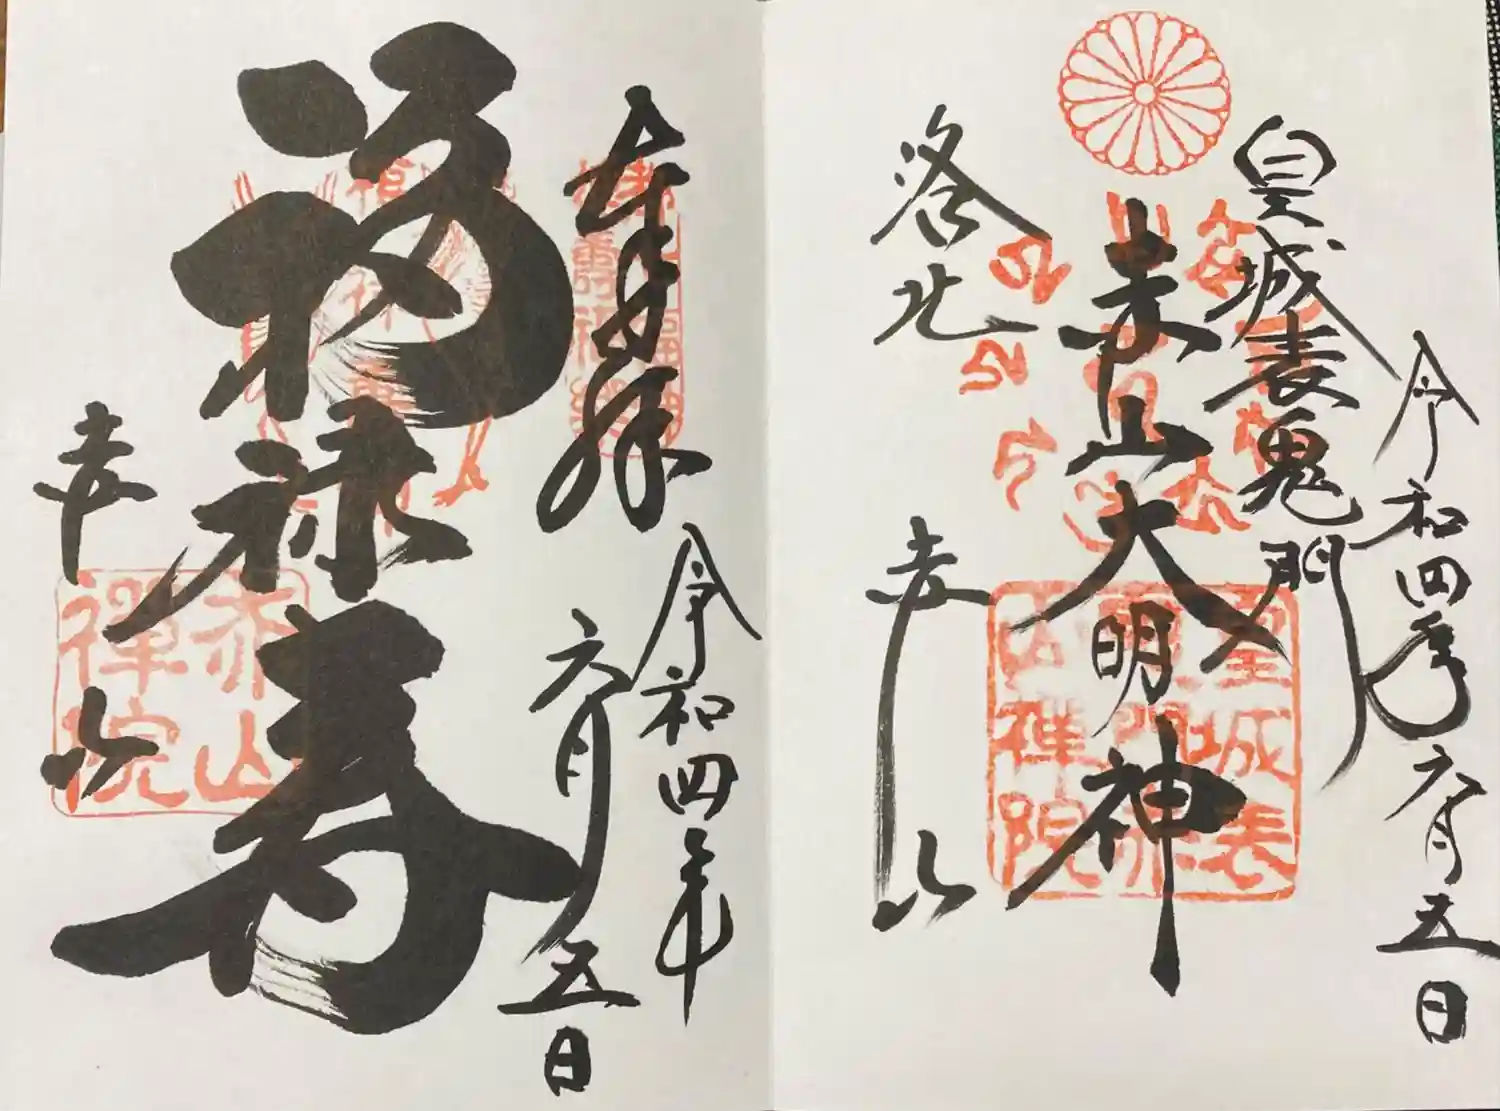 令和四年六月五日
皇城表鬼門
赤山大明神
洛北
赤山
皇城表
鬼門赤
山禅院
令和四年
六月五日
奉拝
福禄寿
赤山
赤山
禪院